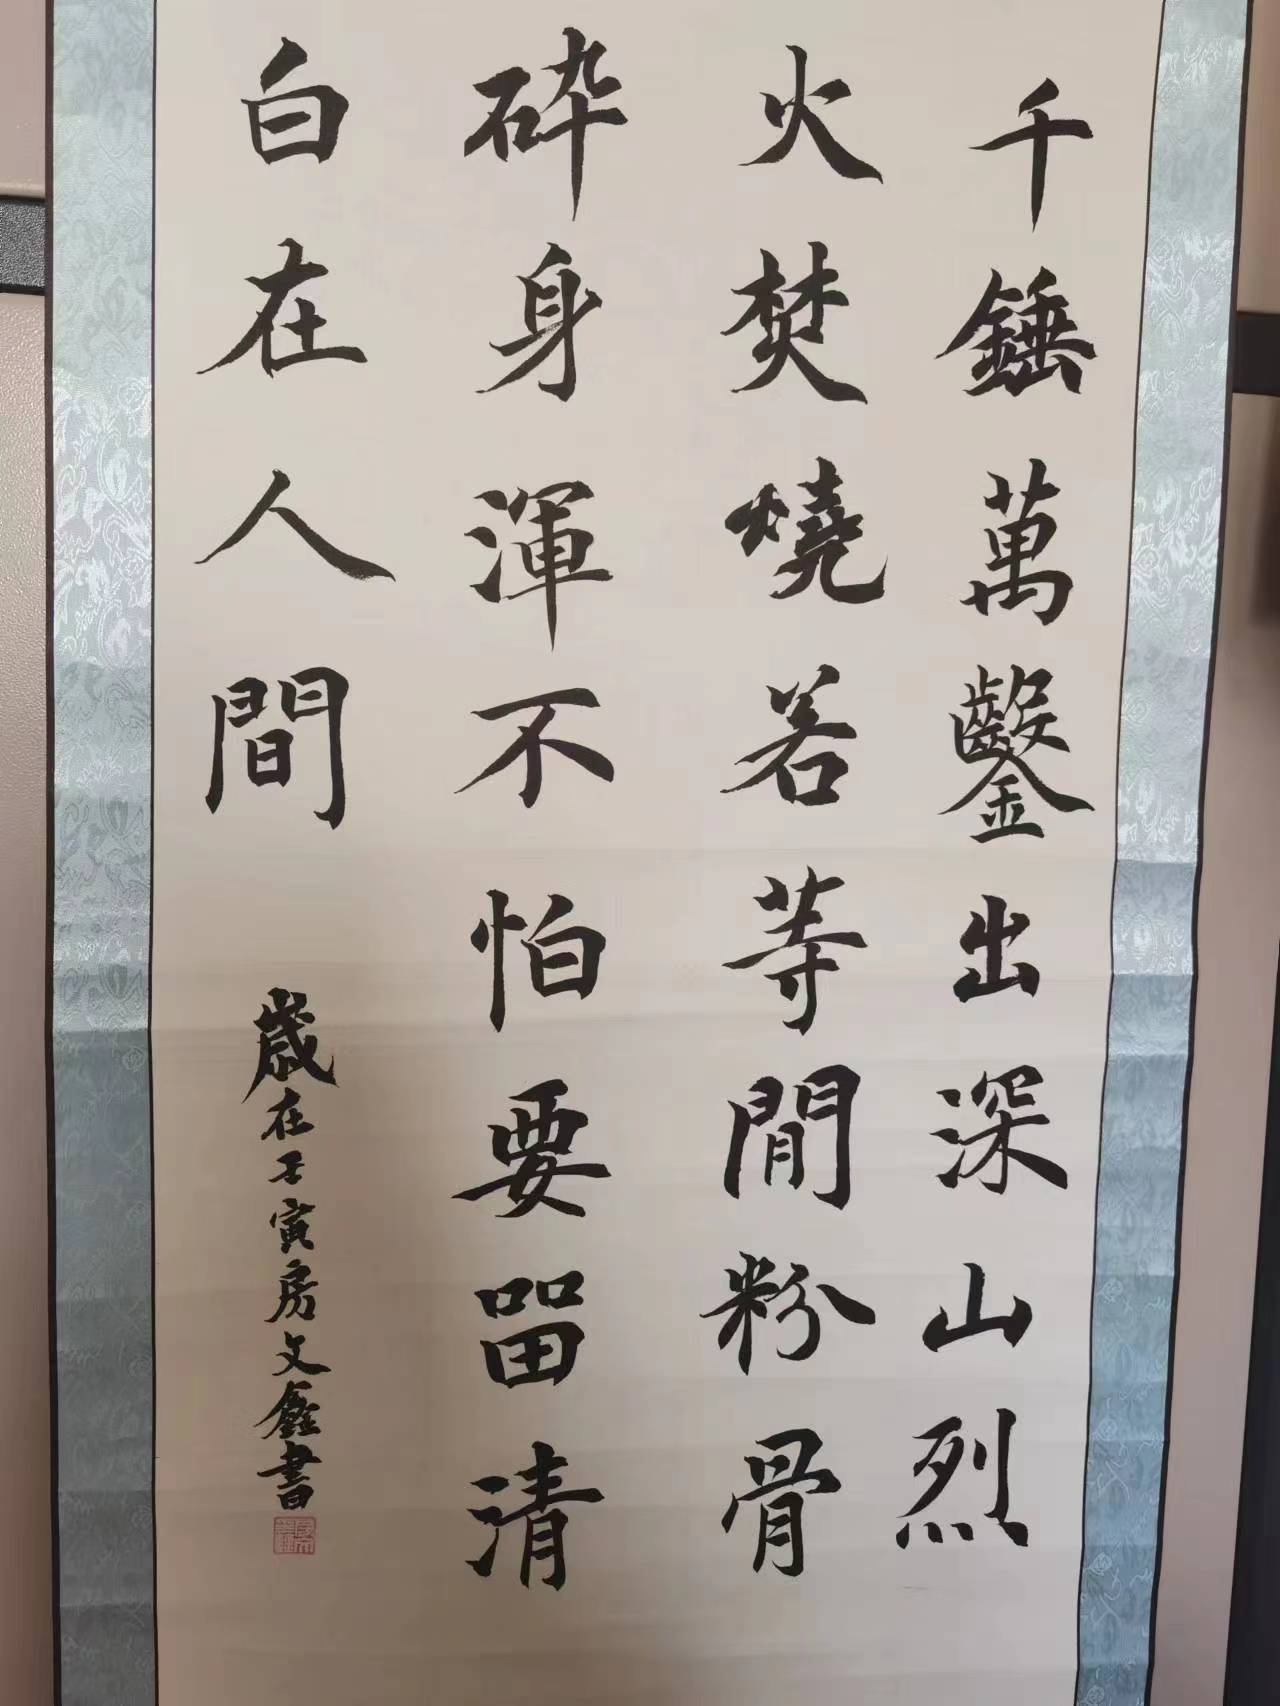 千錘萬鑿出深山烈
火焚燒若等閒粉骨
碎身渾不怕要畱清
白在人間
歲在壬寅房文鑫書